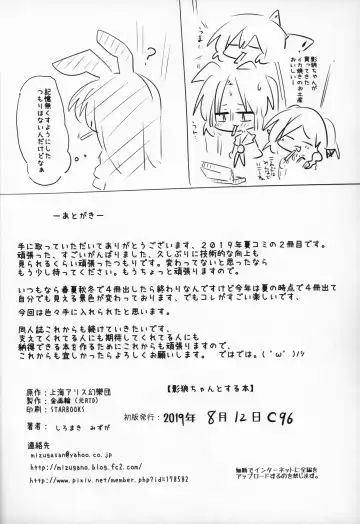 影狼ちゃんが
買ってきた
イカ焼きのお土産
おいしい!
記憶無くすようにした
つもりはないんだけどなぁ
ーあとがきー
手に取っていただいてありがとうございます、2019年夏コミの2冊目です。
頑張った、すごいがんばりました、久しぶりに技術的な向上も
見られるくらい頑張ったつもりです。変わってないと思ったなら
もう少し待ってください。もうちょっと頑張りますので。
いつもなら春夏秋冬で4冊出したら終わりなんですけど今年は夏の時点で4冊出て
自分でも見える景色が変わっております、でもコレがすごい楽しいです、
今回は色々手に入れられたと思います。
同人誌これからも続けていきたいです、
支えてくれてる人にも期待してくれてる人にも
納得できる本を作るためにこれからも頑張りますので、
これからも宜しかったらよろしくお願いします。 ではでは。( 'ω')ノシ
原作:上海アリス幻樂団
製作:金画輪(元RTD)
印刷:STARBOOKS
著者: しろまき みずが
【影狼ちゃんとする本】
初版発行: 2019年 8月12日 C96
連絡先
mizugasan@yahoo.co.jp
http://mizugano.blog.fc2.com/
http://www.pixiv.net/member.php?id=178582
無断でインターネットに全編を
アップロードするのはご遠慮下さい。